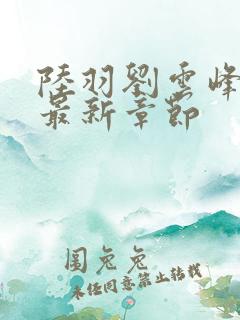 陸羽劉雲峰
最新章節
圖兔兔
未經同意禁止轉載